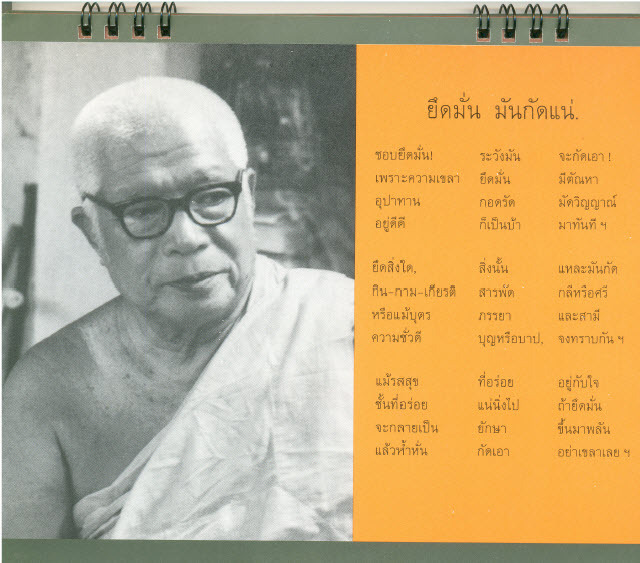 ยึดมั่น มันกัดแน่.
ชอบยึดมั่น! ระวังมัน จะกัดเอา !
เพราะความเขลา ยึดมั่น มีตัณหา
อุปาทาน กอดรัด มัดวิญญาณ์
อยู่ดีดี ก็เป็นบ้า มาทันที ฯ
ยึดสิ่งใด, สิ่งนั้น แหละมันกัด
กิน-กาม-เกียรติ สารพัด กลีหรือศรี
หรือแม้บุตร ภรรยา และสามี
ความชั่วดี บุญหรือบาป, จงทราบกัน ฯ
แม้รสสุข ที่อร่อย อยู่กับใจ
ชั้นที่อร่อย แน่นิ่งไป ถ้ายึดมั่น
จะกลายเป็น ยักษา ขึ้นมาพลัน
แล้วห้ำหั่น กัดเอา อย่าเขลาเลย ฯ